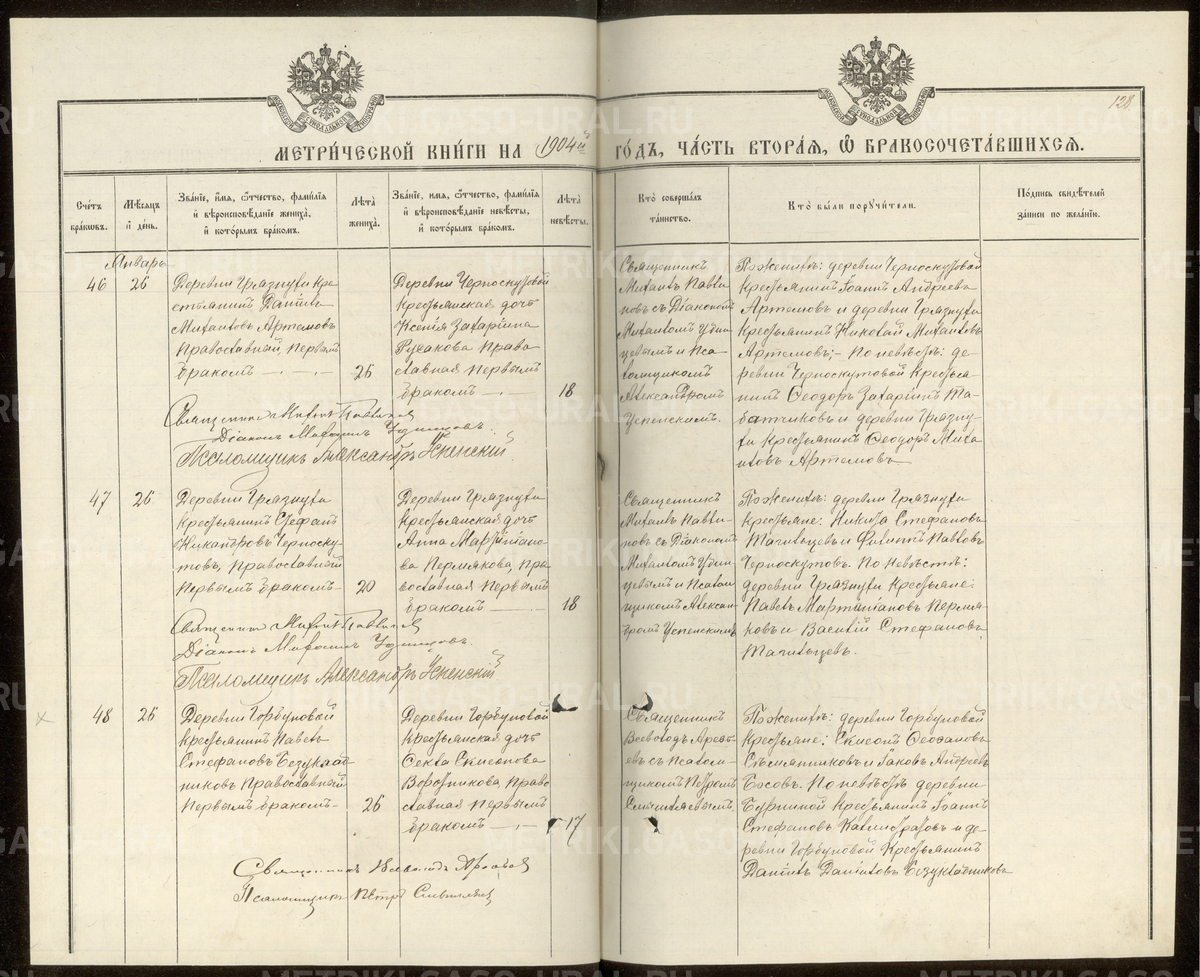 128
МЕТРИ́ЧЕСКОЙ КНИ́ГИ НА 1904й ГО́ДЪ, ЧА́СТЬ ВТОРА́Я, Ѽ БРАКОСОЧЕТА́ВШИХСЯ.
Сче́тъ бра́ковъ.
Мѣ́сяцъ и҆ де́нь.
Зва́нїе, и҆́мя, ѻ҆́тчество, фами́лїя
и҆ вѣроисповѣ́данїе жениха̀,
и҆ кото́рымъ бра́комъ.
Лѣ́та жениха̀.
Зва́нїе, и҆́мя, ѻ҆́тчество, фами́лїя
и҆ вѣроисповѣ́данїе невѣ́сты,
и҆ кото́рымъ бра́комъ.
Лѣ́та невѣ́сты.
Кто̀ соверша́лъ
та́инство.
Кто̀ бы́ли поручи́тели.
По́дпись свидѣ́телей
за́писи по жела́нїю.
Январь
46
26
Деревни Грязнухи Кре
стьянинъ Данiилъ
Михаиловъ Артемовъ
Православный Первымъ
бракомъ
26
Деревни Черноскутовой
Крестьянская дочь
Ксенiя Захарiина
Православная Первымъ
бракомъ
18
Священникъ
Михаилъ
съ Дiакономъ
Михаиломъ
и Пса
ломщикомъ
Александромъ
Успенскимъ.
По женихѣ: деревни Черноскутовой
Крестьянинъ Iоаннъ Андреевъ
Артемовъ и деревни Грязнухи
Крестьянинъ Николай Михаиловъ
Артемовъ; - По невѣстѣ: де-
ревни Черноскутовой Крестья-
нинъ Ѳеодоръ Захарiинъ Та-
батчиковъ и деревни Грязну-
хи Крестьянинъ Ѳеодоръ Миха
иловъ Артемовъ
Священникъ
Дiаконъ
Псаломщикъ Александръ Успенскiй
47
26
Деревни Грязнухи
Крестьянинъ Стефанъ
Никаноровъ Черноску-
товъ, Православный
Первымъ бракомъ
20
Деревни Грязнухи
Крестьянская дочь
Анна Мартинiано-
ва Пермякова, Пра
вославная Первымъ
бракомъ
18
Священникъ
Михаилъ
съ Дiакономъ
Михаиломъ
и Псалом
щикомъ Алексан-
дромъ Успенскимъ
По женихѣ: деревни Грязнухи
Крестьяне: Никита Стефановъ
Тагильцевъ и Филиппъ Павловъ
Черноскутовъ. По Невѣстѣ:
деревни Грязнухи Крестьяне:
Павелъ Мартинiановъ Пермя-
ковъ и Василiй Стефановъ
Тагильцевъ.
Священникъ
Дiаконъ
Псаломщикъ Александръ Успенскiй
48
26
Деревни Горбуновой
Крестьянинъ Павелъ
Стефановъ Безуклад
никовъ Православный
Первымъ бракомъ
26
Деревни Горбуновой
Крестьянская дочь
Ѳекла
Воротникова, Право
славная Первымъ
бракомъ
17
Священникъ
Всеволодъ
съ Псалом-
щикомъ Петромъ
По женихѣ: деревни Горбуновой
Крестьяне:
и Iаковъ Андреевъ
Босовъ. По невѣстѣ деревни
Крестьянинъ Iоаннъ
Стефановъ Калистратовъ и де-
ревни Горбуновой Крестьянинъ
Данiилъ Данiиловъ Безукладниковъ
Священникъ Всеволодъ
Псаломщикъ Петръ
METRIKI.GASO-URAL.RU